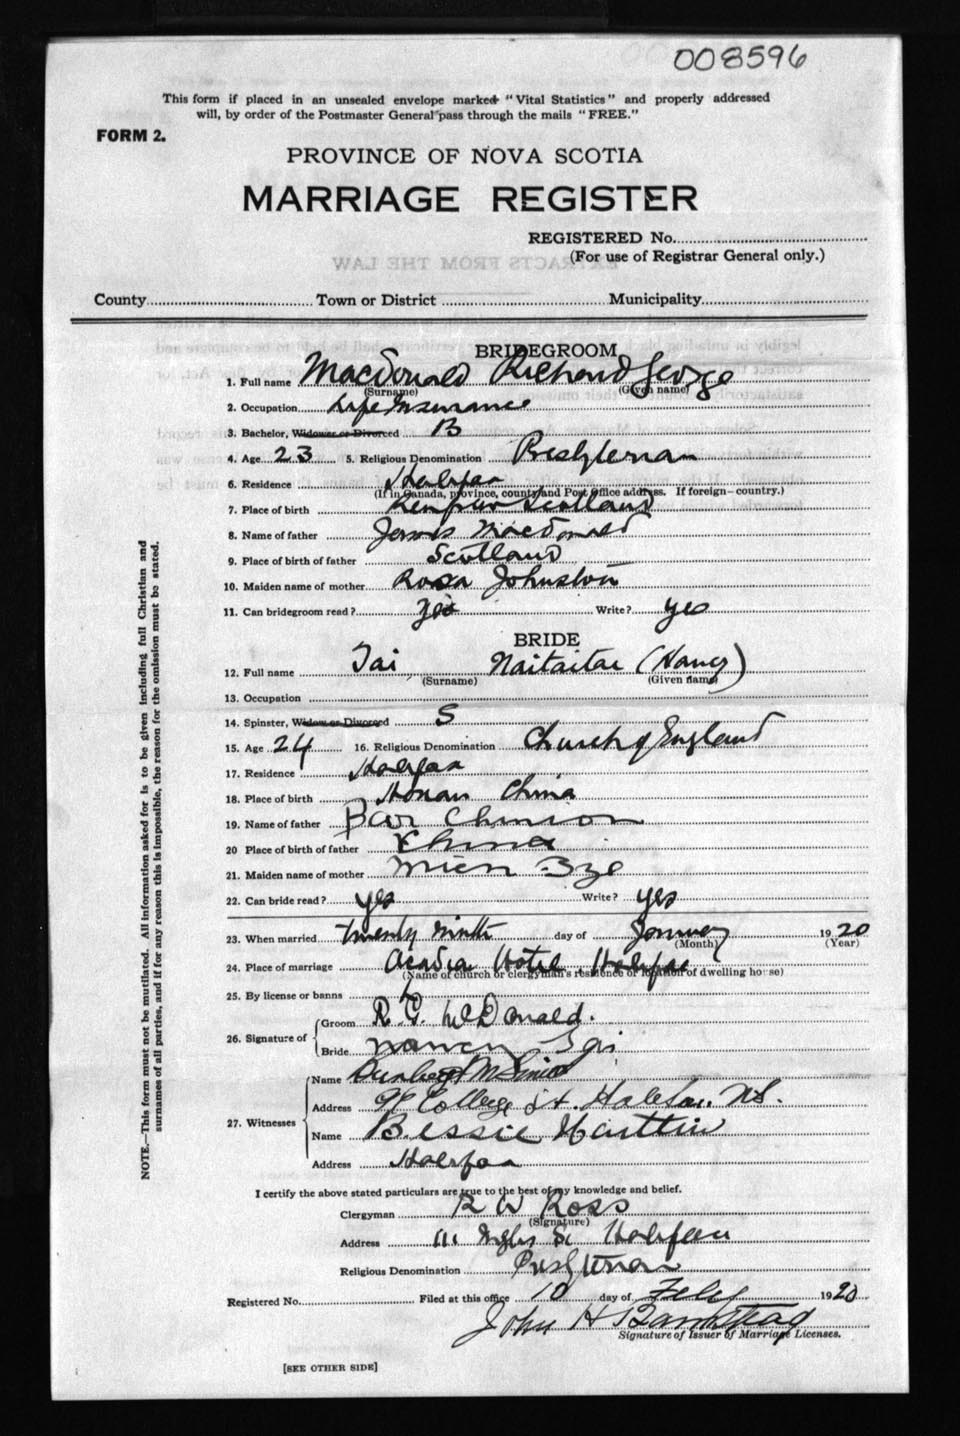 008596
This form if placed in an unsealed envelope marked "Vital Statistics" and properly addressed
will, by order of the Postmaster General pass through the mails "FREE."
FORM 2.
PROVINCE OF NOVA SCOTIA
MARRIAGE REGISTER
REGISTERED No.
(For use of Registrar General only.)
EXTRACTS FROM THE LAW
County Town or District Municipality
BRIDEGROOM
1. Full name MacDonald Richard George
(Surname) (Given name)
2. Occupation Life Insurance
3. Bachelor, Widower or Divorced B
4. Age 23 5. Religious Denomination Presbyterian
6. Residence Halifax
(If in Canada, province, county and Post Office address. If foreign—country.)
7. Place of birth Scotland
8. Name of father James MacDonald
9. Place of birth of father Scotland
10. Maiden name of mother Rosa Johnston
11. Can bridegroom read? Yes Write? yes
BRIDE
12. Full name Tai Naitaitai (Nancy)
(Surname) (Given name)
13. Occupation
14. Spinster, Widow or Divorced S
15. Age 24 16. Religious Denomination Church of England
17. Residence Halifax
18. Place of birth Honan China
19. Name of father
20 Place of birth of father China
21. Maiden name of mother
22. Can bride read? yes Write? yes
23. When married twenty ninth day of January 1920
(Month) (Year)
24. Place of marriage Acadia Hotel Halifax
(Name of church or clergyman's residence or location of dwelling house)
25. By license or banns L
26. Signature of Groom R. G. McDonald.
Bride Nancy Tai
27. Witnesses Name
Address College St. Halifax. NS.
Name Bessie
Address Halifax
I certify the above stated particulars are true to the best of my knowledge and belief.
Clergyman R W Ross
(Signature)
Address Inglis St Halifax
Religious Denomination Presbyterian
Registered No. Filed at this office 10 day of Feby 1920
John H
Signature of Issuer of Marriage Licenses.
[SEE OTHER SIDE]
NOTE.—This form must not be mutilated. All information asked for is to be given including full Christian and
surnames of all parties, and if for any reason this is impossible, the reason for the omission must be stated.